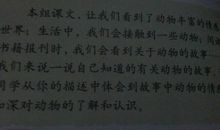 本组课文，让我们看到了动物丰富的情感
世界；生活中，我们会接触到一些动物；阅
书籍报刊时，我们会看到关于动物的故事
我们来说一说自己知道的有关动物的故事，
同学从你的描述中体会到故事中动物的情
和深对动物的了解和认识。